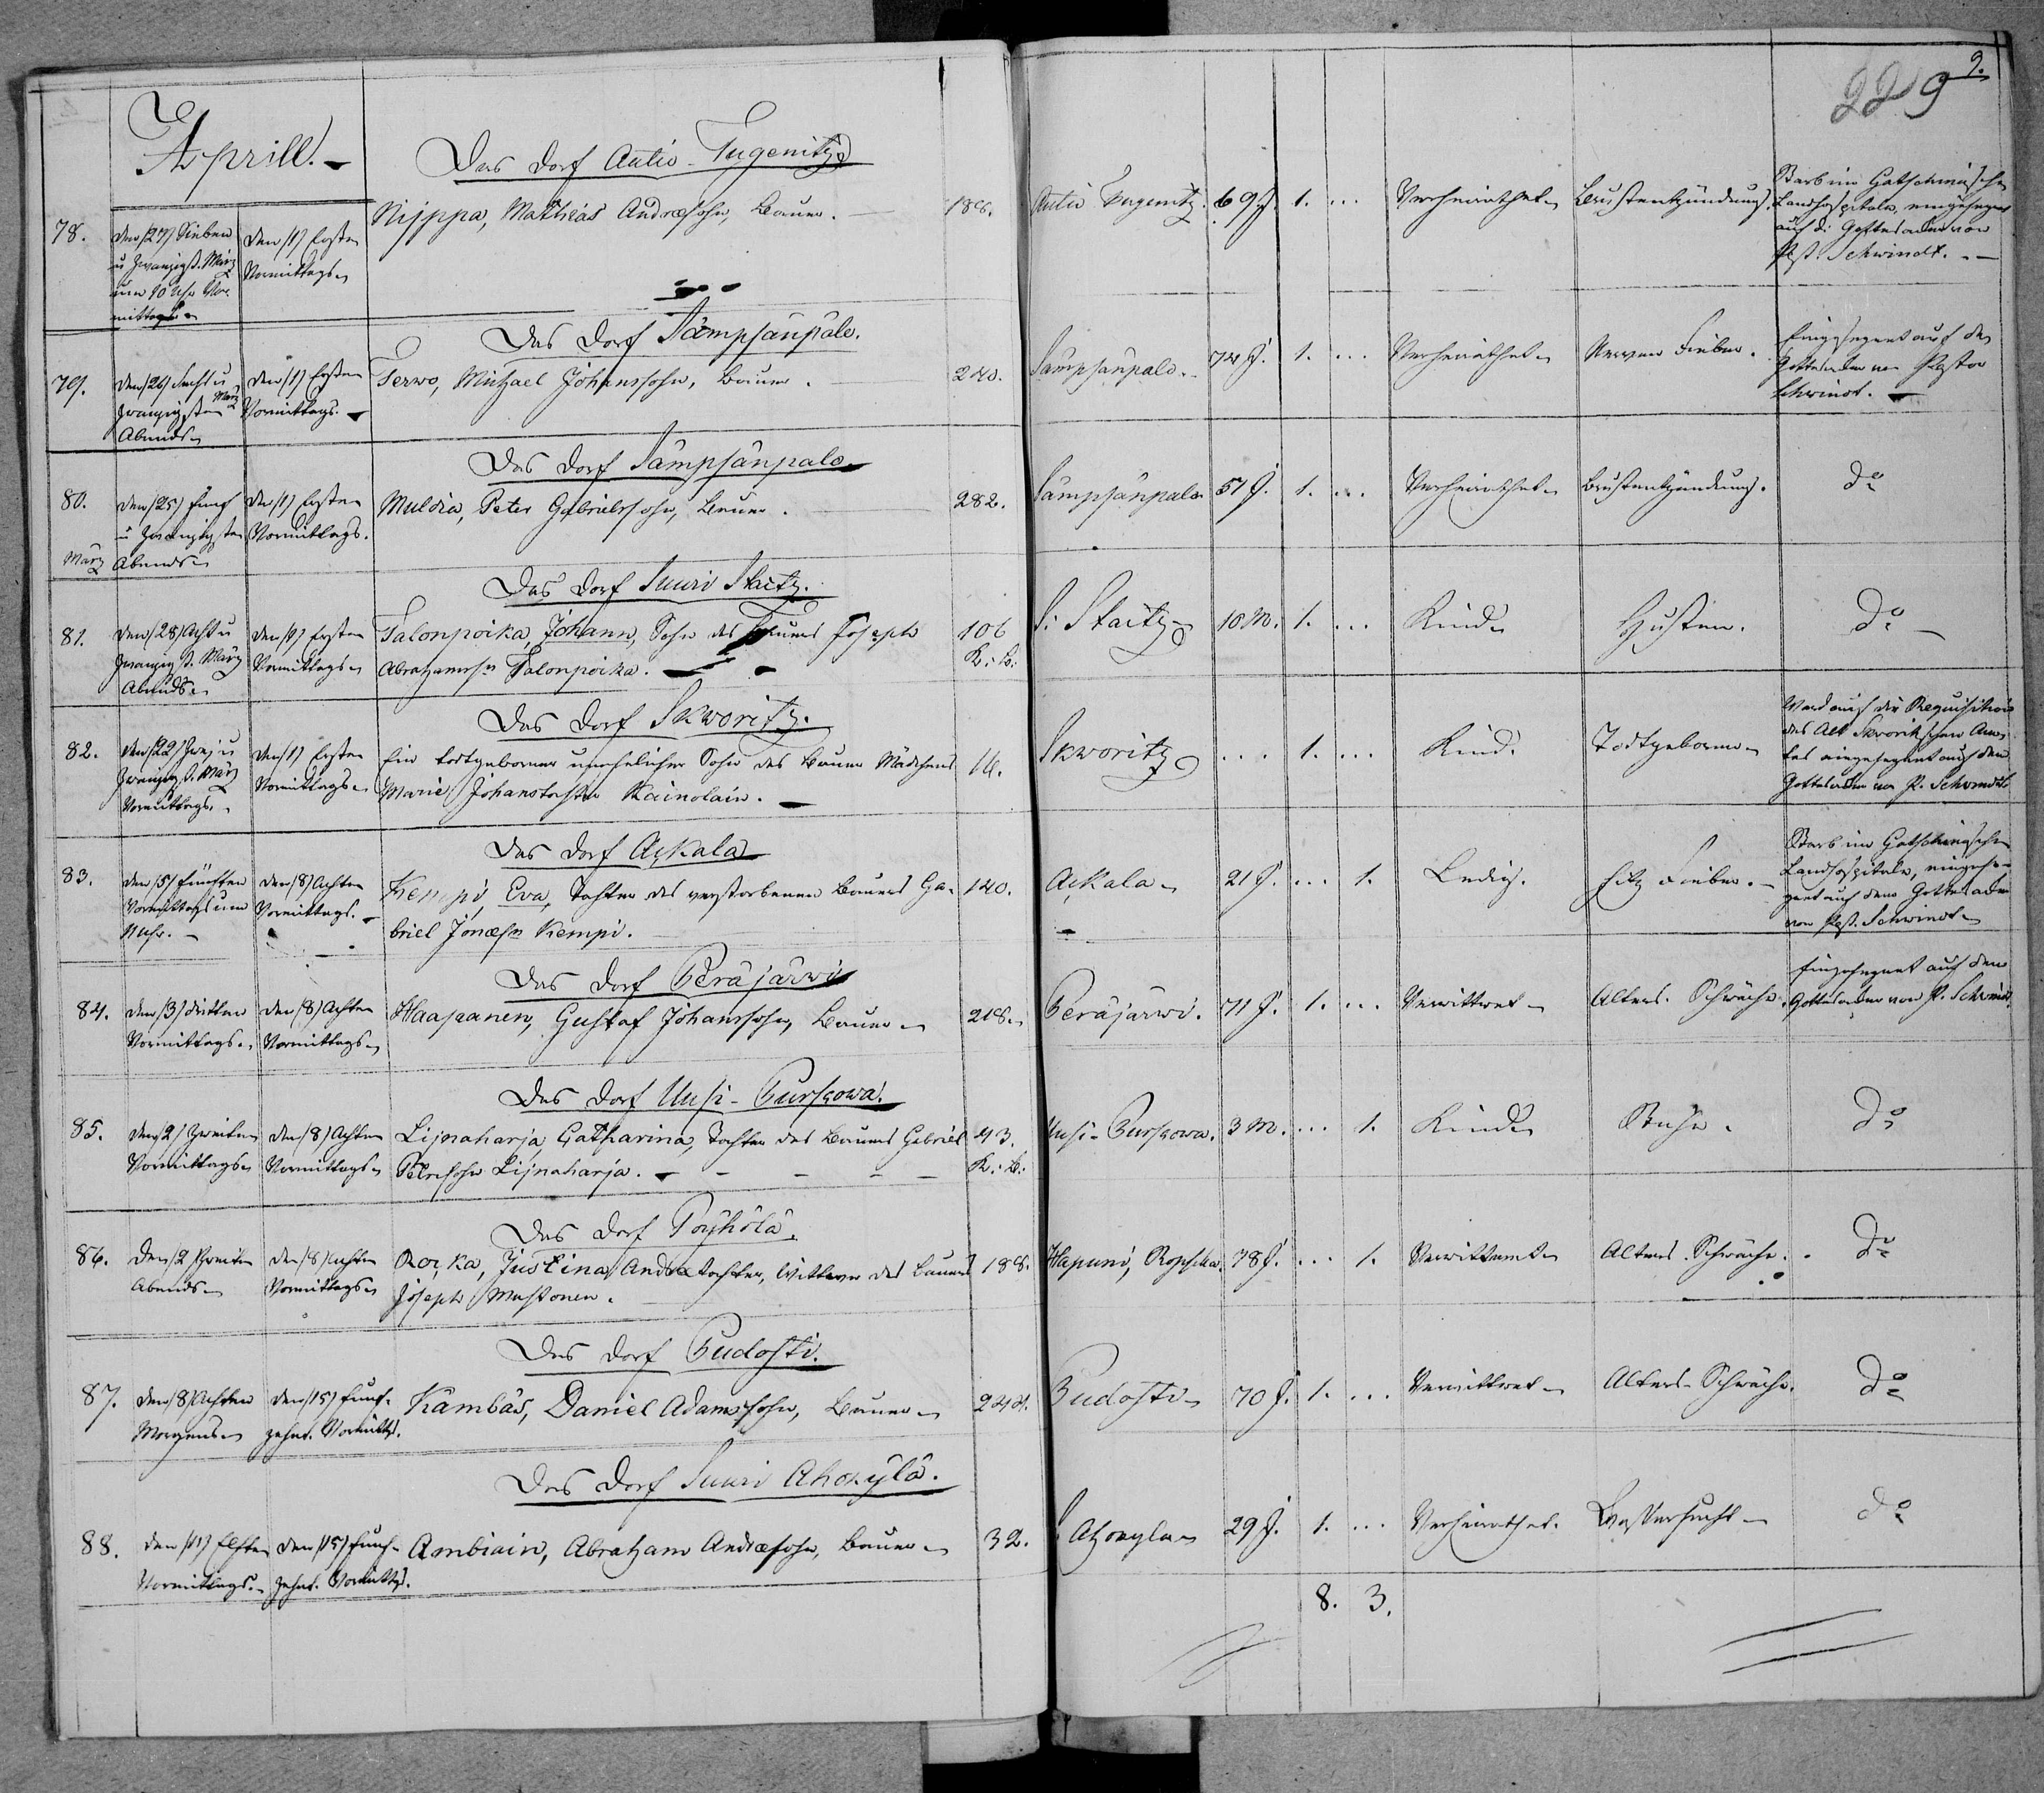 9.
229
Aprill.
Das Dorf Autio-Jugenitz
78.
den (27) Sieben
u Zwanzigst. März
um 10 Uhr Vor-
mittags
den (1) Ersten
Vormittags
Nippa, Mathias Andreæsohn, Bauer.
186.
Autio Jugenitz.
69 J.
1.
...
Verheirathet
Brustentzündung.
Starb im Gatschinaschen
Landhospitale, eingesegnet
auf d. Gottesacker von
Past. Schwindt.
Das Dorf Sämpsänpalo.
79.
den (26) Sechs u
Zwanzigsten März
Abends
den (1) Ersten
Vormittags.
Terwo, Michael Johanssohn, Bauer.
240.
Sämpsänpalo.
74 J.
1.
...
Verheirathet
Nerven Fieber.
Eingesegnet auf dem
Gottesacker von Pastor
Schwindt.
Das Dorf Sämpsänpalo
80.
den (25) Fünf
u Zwanzigsten
März Abends
den (1) Ersten
Vormittags.
Muldia, Peter Gabrielssohn, Bauer.
282.
Sämpsänpalo
57 J.
1.
...
Verheirathet
Brustentzündung.
do
Das Dorf Suuri Staitz.
81.
den (28) Acht u
Zwanzigst. März
Abends
den (1) Ersten
Vormittags
Talonpoika, Johann, Sohn des Bauers Joseph
Abrahamssn Talonpoika.
106
K. B.
S. Staitz
10 M.
1.
...
Kind
Husten.
do
Das Dorf Skworitz.
82.
den (22) Zwei u
Zwanzigst. März
Vormittags.
den (1) Ersten
Vormittags
Ein todtgeborner unehelicher Sohn des Bauer Mädchens
Marie Johanstochter Kainolain.
14.
Skworitz
...
1.
...
Kind.
Todtgeboren
Ward auf die Requisition
des Alt Skworitzschen Am-
tes eingesegnet auf dem
Gottesacker von P. Schwindt
Das Dorf Ackala
83.
den (5) Fünften
Vormittags um
Uhr.
den (8) Achten
Vormittags.
Kempi, Eva, Tochter des verstorbenen Bauers Ga-
briel Jonæsn Kempi.
140.
Ackala
21 J.
...
1.
Ledig.
Hitz Fieber.
Starb im Gatschinaschen
Landhospitale, eingese-
gnet auf dem Gottesacker
von Past. Schwindt
Das Dorf Peräjärwi
84.
den (3) dritten
Vormittags
den (8) Achten
Vormittags
Haapanen, Gustaf Johanssohn, Bauer
218.
Peräjärwi.
71 J.
1.
...
Verwittwet
Alters Schwäche.
Eingesegnet auf dem
Gottesacker von P. Schwindt.
Das Dorf Uusi-Purskowa.
85.
den (2) Zweiten
Vormittags
den (8) Achten
Vormittags
Lijnaharja, Catharina, Tochter des Bauers Gabriel
Petrisohn Lijnaharja.
43.
K. B.
Uusi-Purskowa.
3 M.
...
1.
Kind
Ruhr.
do
Das Dorf Pöyhölä.
86.
den (2 Zweiten
Abends
den (8) Achten
Vormittags
Rokka, Justina Andreætochter, Wittwe des Bauers
Joseph Mustonen.
188.
Hapuni, Ropscha.
78 J.
...
1.
Verwittwet
Alters Schwäche.
do
Das Dorf Pudosti.
87.
den (8) Achten
Morgens
den (15) Funf-
zehnt. Vormittgs.
Kämbäs, Daniel Adamssohn, Bauer
244.
Pudosti
70 J.
1.
...
Verwittwet
Alters-Schwäche.
do
Das Dorf Suuri Ahokylä.
88.
den (11) Elften
Vormittags.
den (15) Funf-
zehnt. Vormittgs.
Ambiain, Abraham Andreæsohn, Bauer
32.
S. Ahokyla
29 J.
1.
...
Verheirathet.
Wassersucht
do
8. 3.